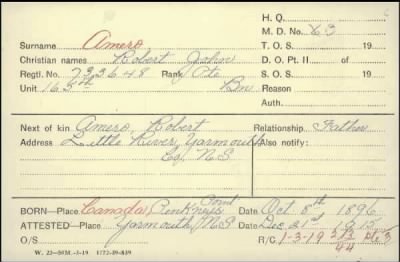 H. Q.
Surname Amero M. D. No. 63
Christian names Robert John T. O. S. 19
Regtl. No. 733648 Rank Pte D. O. Pt. II
S. O. S. 19
Unit 165th Bn Reason
Auth.
Next of kin Amero, Robert Relationship Father
Address Little River, Yarmouth Also notify:
Co, N.S
BORN—Place Canada, Point Date Oct 8th 1896
ATTESTED—Place Yarmouth, N.S Date Dec 21st 1915
O/S R/C 1-3-19 3/3
44
W. 22–50M.–3-19 1772-39-839